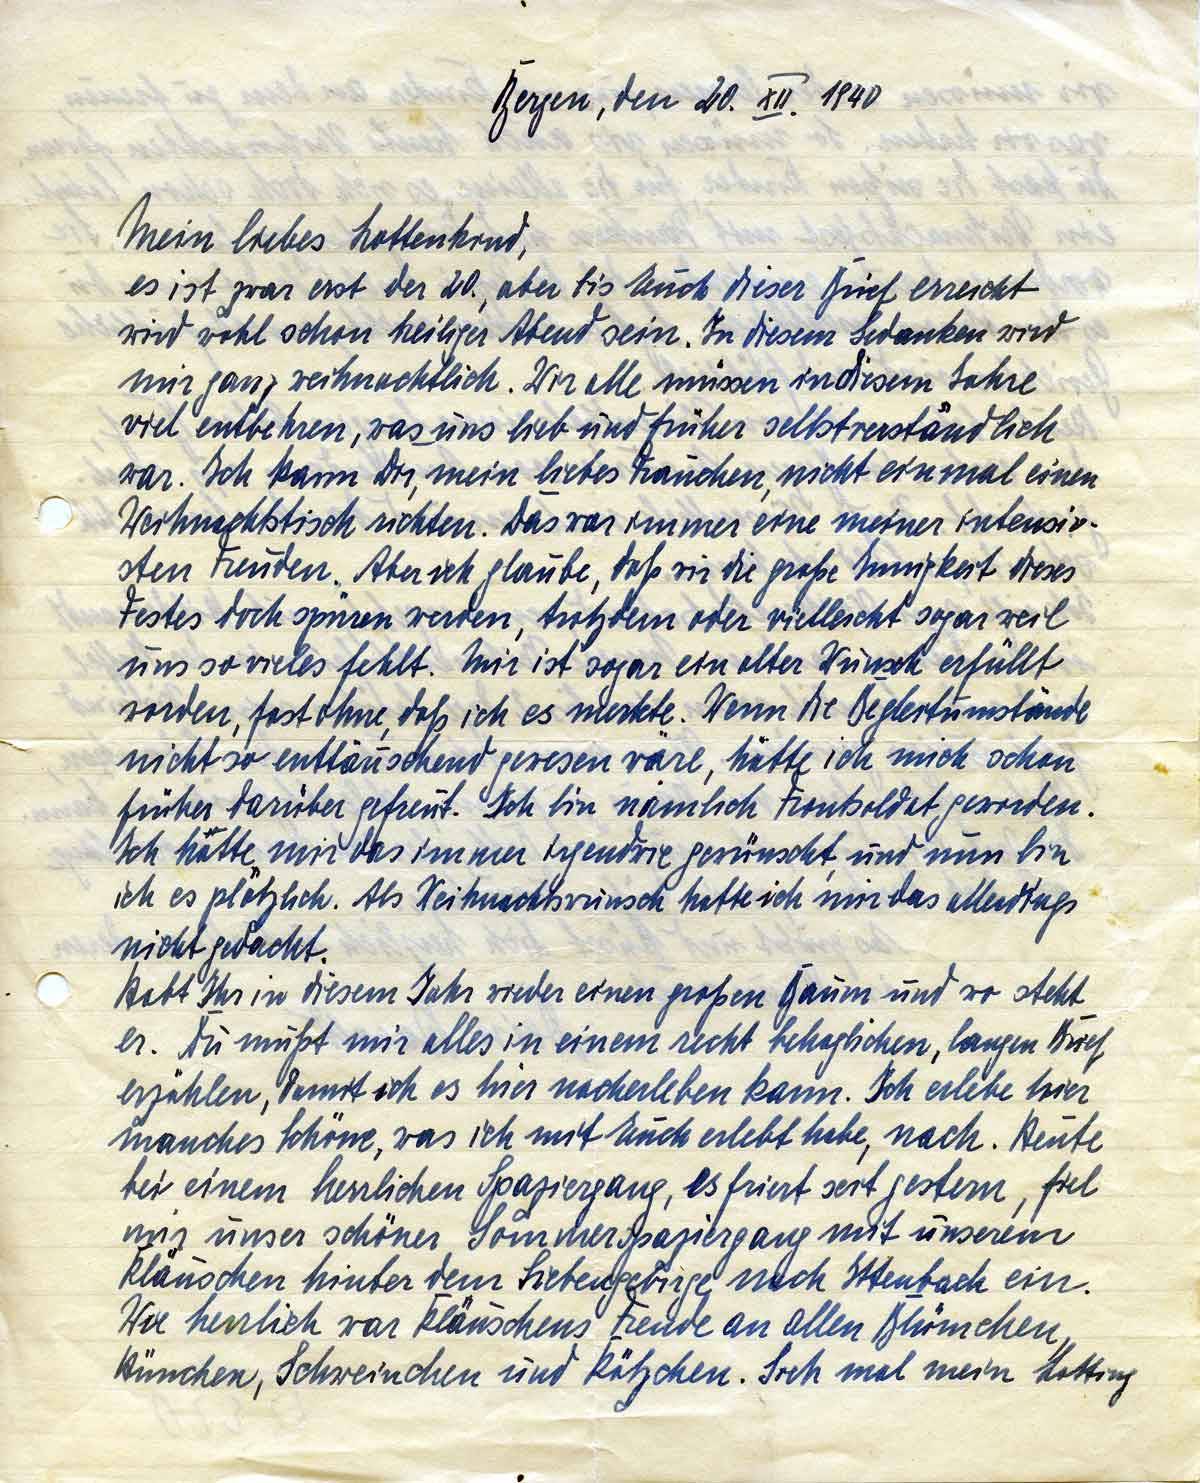 Bergen, den 20. XII. 1940
Mein liebes Lottenkind,
es ist zwar erst der 20., aber bis Euch dieser Brief erreicht
wird wohl schon heiliger Abend sein. In diesem Gedanken wird
mir ganz weihnachtlich. Wir alle müssen in diesem Jahre
viel entbehren, was uns lieb und früher selbstverständlich
war. Ich kann Dir, mein liebes Frauchen, nicht einmal einen
Weihnachtstisch richten. Das war immer eine meiner intensiv-
sten Freuden. Aber ich glaube, daß wir die große Innigkeit dieses
Festes doch spüren werden, trotzdem oder vielleicht sogar weil
uns so vieles fehlt. Mir ist sogar ein alter Wunsch erfüllt
worden, fast ohne, daß ich es merkte. Wenn die Begleitumstände
nicht so enttäuschend gewesen wäre, hätte ich mich schon
früher darüber gefreut. Ich bin nämlich Frontsoldat geworden.
Ich hätte mir das immer irgendwie gewünscht, und nun bin
ich es plötzlich. Als Weihnachtswunsch hatte ich mir das allerdings
nicht gedacht.
Habt Ihr in diesem Jahr wieder einen großen Baum und wo steht
er. Du mußt mir alles in einem recht behaglichen, langen Brief
erzählen, damit ich es hier nacherleben kann. Ich erlebe hier
manches Schöne, was ich mit Euch erlebt habe, nach. Heute
bei einem herrlichen Spaziergang, es friert seit gestern, fiel
mir unser schöner Sommerspaziergang mit unserem
Kläuschen hinter dem Siebengebirge nach Ittenbach ein.
Wie herrlich war Kläuschens Freude an allen Blümchen,
Hünchen, Schweinchen und Kätzchen. Sieh mal mein